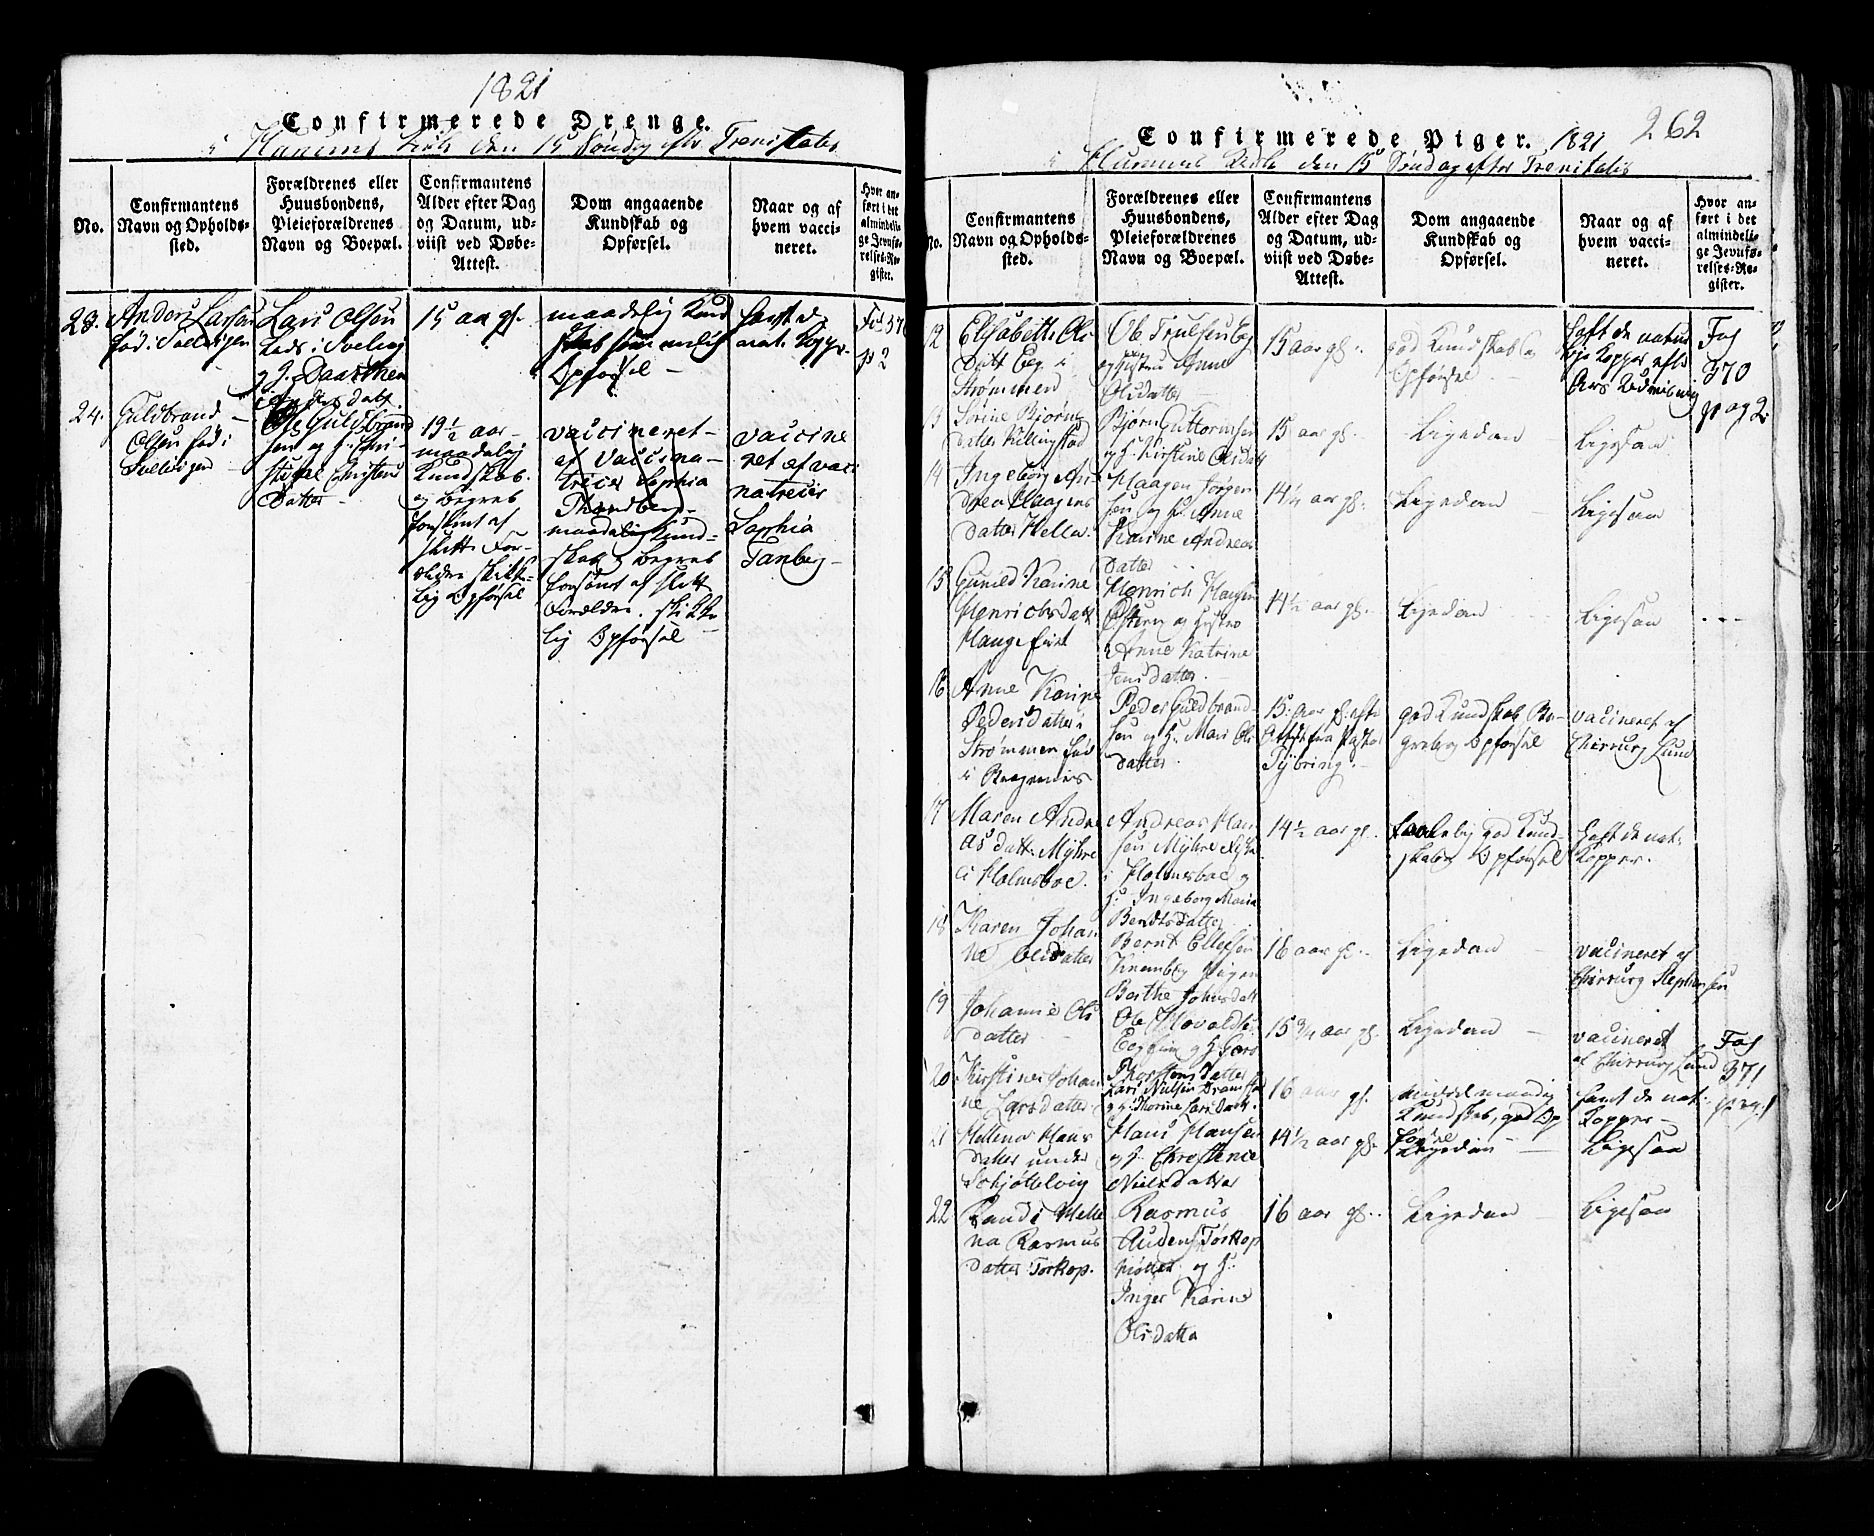 1821
Confirmerede Drenge.
i Hurums Kirke den 15 Søndag efter Trenitatis
No.
Confirmantens
Navn og Opholds-
sted.
Forældrenes eller
Huusbondens,
Pleieforældrenes
Navn og Boepæl.
Confirmantens
Alder efter Dag
og Datum, ud-
viist ved Døbe-
Attest.
Dom angaaende
Kundskab og
Opførsel.
Naar og af
hvem vacci-
neret.
Hvor an-
ført i det
almindeli-
ge Jevnfø-
relses-Re-
gister.
23.
Anders Larsen
fød i Svelvigen
Lars Olsen
Lods i Svelvig
15 aar gl.
maadelig Kund
skab
Opførsel
haft de
nat. Kopper.
Fol 370
p 2
24.
Guldbrand
Olsen fød i
Svelvigen
Ole Guldbrand
sen og H. Chri-
Christens
Datter
19½ aar
maadelig
Kundskab
og Begreb
forsømt af
slette For-
ældre skikke-
lig Opførsel
vaccineret
af Vaccina-
trice Sophia
Thandberg
maadelig Kund-
skab og Begreb
forsømt af slette
Forældre. skikke
lig Opførsel
vaccine
ret af vacci
natrice
Sophia
Tanberg
262
Confirmerede Piger. 1821
i Hurums Kirke den 15 Søndag efter Trenitatis
No.
Confirmantens
Navn og Opholds-
sted.
Forældrenes eller
Huusbondens,
Pleieforældrenes
Navn og Boepæl.
Confirmantens
Alder efter Dag
og Datum, ud-
viist ved Døbe-
Attest.
Dom angaaende
Kundskab og
Opførsel.
Naar og af
hvem vacci-
neret.
Hvor an-
ført i det
almindeli-
ge Jevnfø-
relses-Re-
gister.
12
Elisabeth Ols
Datt Eeg i
Strømmen
Ole Trulsen Eeg
og Hustru Anne
Olsdatter
15 aar gl.
god Kundskab og
Opførsel
haft de natur
Kopper efter
Fol
370
pag 2.
13
Sørine Bjørns
datter Killingstad
Bjørn Guttormsen
og H. Kirstine Olsdatt
15 aar gl.
Ligedan
Ligesaa
14
Ingeborg An
drea Haagens
datter Hella.
Haagen Jørgen
sen og H. Anne
Karine Andreas
datter
14¼ aar gl.
Ligedan
Ligesaa
15
Gunild Karine
Henrichsdatt
Haugefiret
Henrich Hansen
Østern og Hustro
Anne Katrine
Jensdatter
14½ aar gl.
Ligedan
Ligesaa
16
Anne Karine
Pedersdatter i
Strømmen fød
i Bragernes
Peder Guldbrand
sen og H. Mari Ols
datter
15 aar gl. efter
Attest fra Pastor
Tybring.
god Kundskab Be-
greb og Opførsel
vacineret af
Chirurg Lund
17
Maren Andre
as datt Myhre
i Holmsboe.
Andreas Han
sen Myhre
i Holmsboe og
H. Ingeborg Maria
Bendtsdatter
14½ aar gl.
taalelig god Kund-
skab og Opførsel
haft de nat.
Kopper.
18
Karen Johan
ne Olsdatter
Bernt Ellefsen
Berthe Johnsdatt
16 aar gl.
Ligedan
vacineret af
Chirurg Stephansen
19
Johanne Ols
datter
Ole
Thorstensdatter
15 3/4 aar gl.
Ligedan
vacineret
af Chirurg Lund
Fol
371
pag. 1
20
Kirstine Johan
ne Larsdatter
Lars Nilsen Dramstad
og H. Thorine Larsdatt.
16 aar gl.
middelmaadig
Kundskab, god Op
førsel
havt de nat.
Kopper
21
Hellene Hans
datter under
Schjøttelvig
Hans Hansen
og H. Christence
Nielsdatter
14½ aar gl.
Ligedan
Ligesaa
22
Randi Helle
na Rasmus
datter Torkop.
Rasmus
Audens Torkop
og H.
Inger Karine
Olsdatter
16 aar gl.
Ligedan
Ligesaa